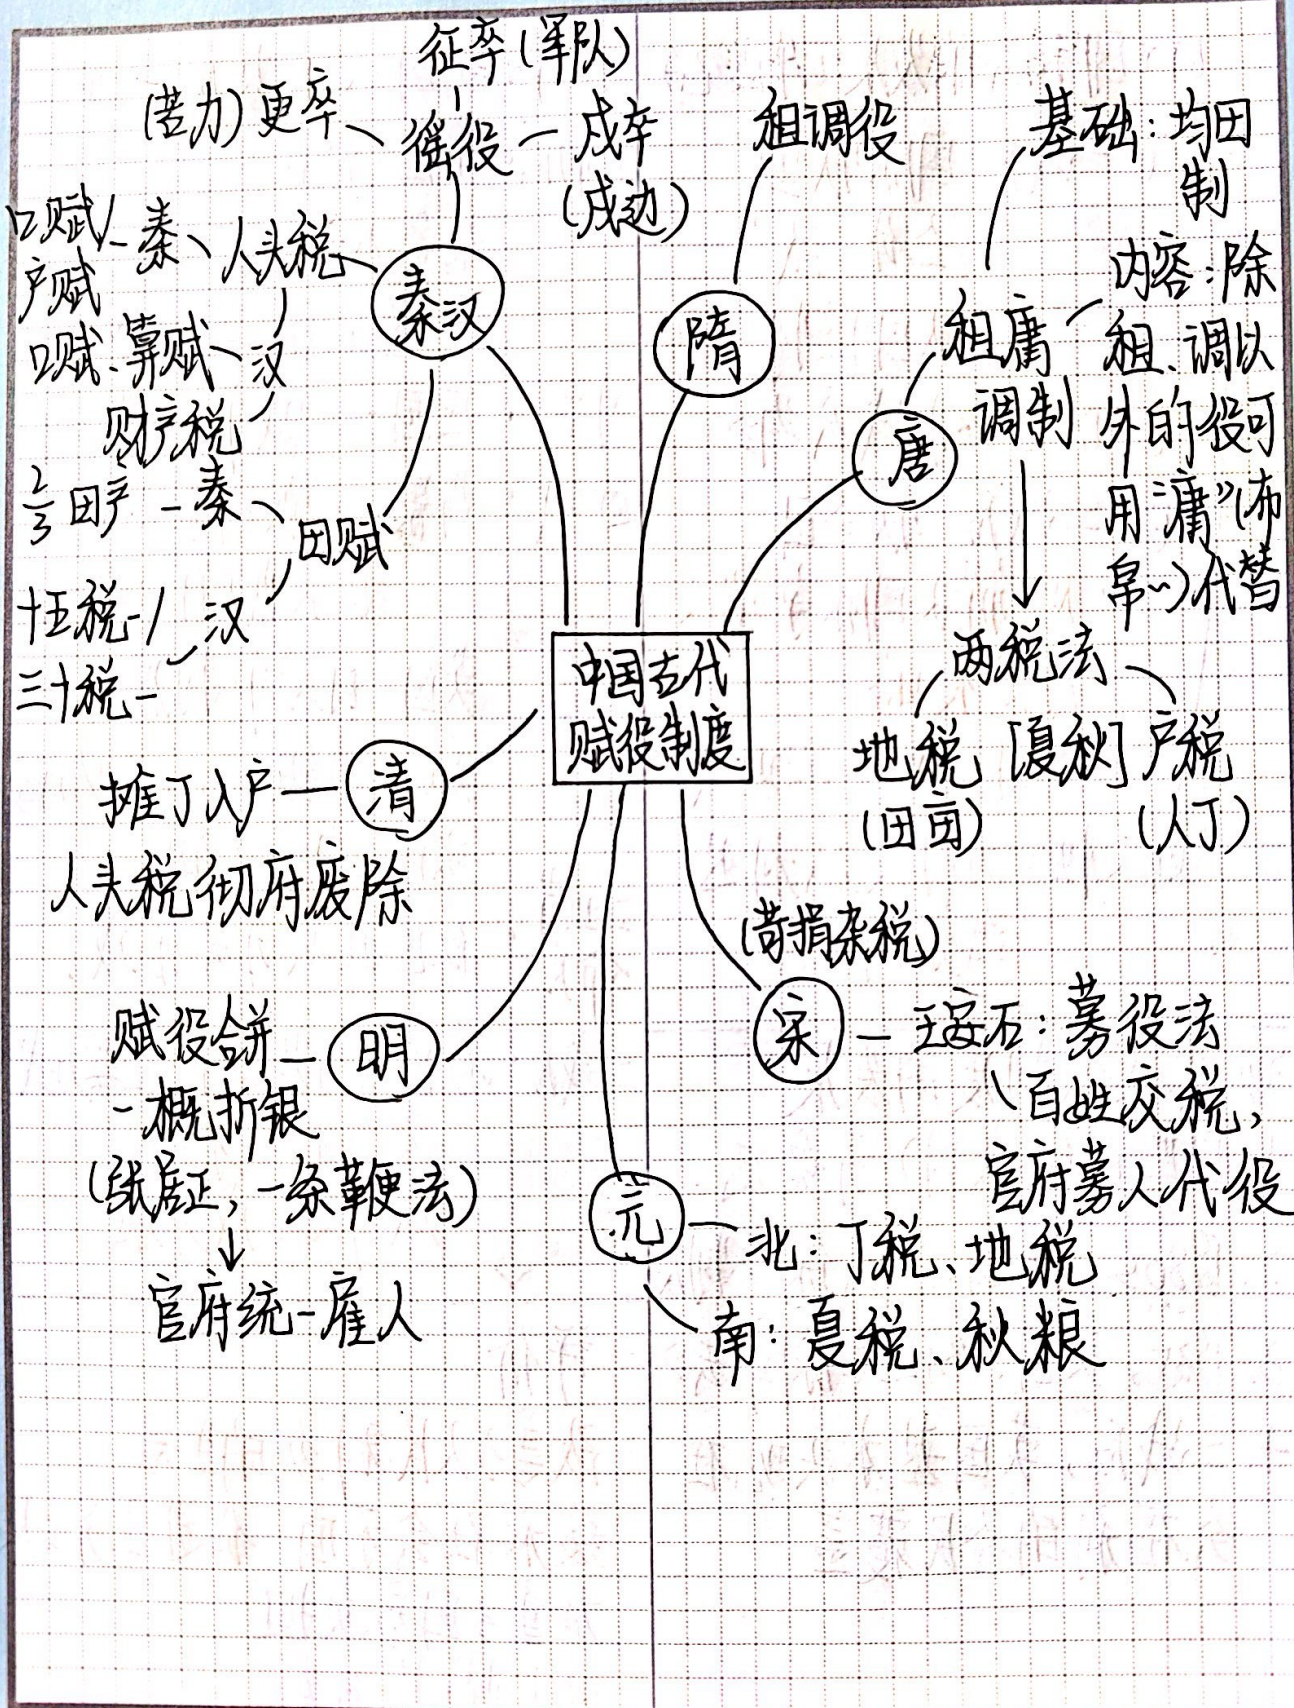 中国古代
赋役制度
秦汉
徭役
征卒(军队)
(苦力)更卒
戍卒
(戍边)
人头税
秦
口赋/
户赋
汉
口赋、算赋
财产税
田赋
秦
2/3田产
汉
十五税一/
三十税一
隋
租调役
唐
租庸
调制
基础:均田
制
内容:除
租、调以
外的役可
用“庸”(布
帛~)代替
两税法
地税[夏秋]户税
(田亩)
(人丁)
(苛捐杂税)
宋
王安石:募役法
百姓交税,
官府募人代役
元
北:丁税、地税
南:夏税、秋粮
明
赋役合并
一概折银
(张居正,一条鞭法)
官府统一雇人
清
摊丁入户
人头税彻府废除